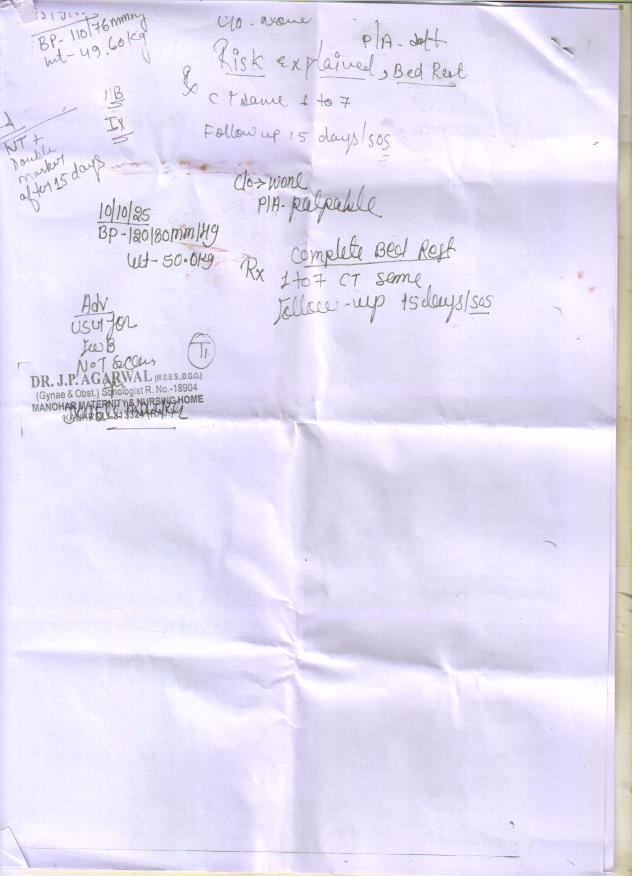 BP- 110/76mmHg
wt- 49.60kg
C/o- 
P/A- soft
Risk explained, Bed Rest
Rx
CT same 1 to 7
Follow up 15 days/SOS
IX
NT +
Double
marker
after 15 days
C/o→
P/A- palpable
10/10/25
BP-120/80mm/Hg
wt- 50.0kg
Complete Bed Rest
Rx
1 to 7 CT same
Follow-up 15days/SOS
Adv
USG for
FWB
NOT Scan
T1
DR. J.P. AGARWAL (M.B.B.S.,D.G.O.)
(Gynae & Obst.) Sonologist R. No.-18904
MANOHAR MATERNITY & NURSING HOME